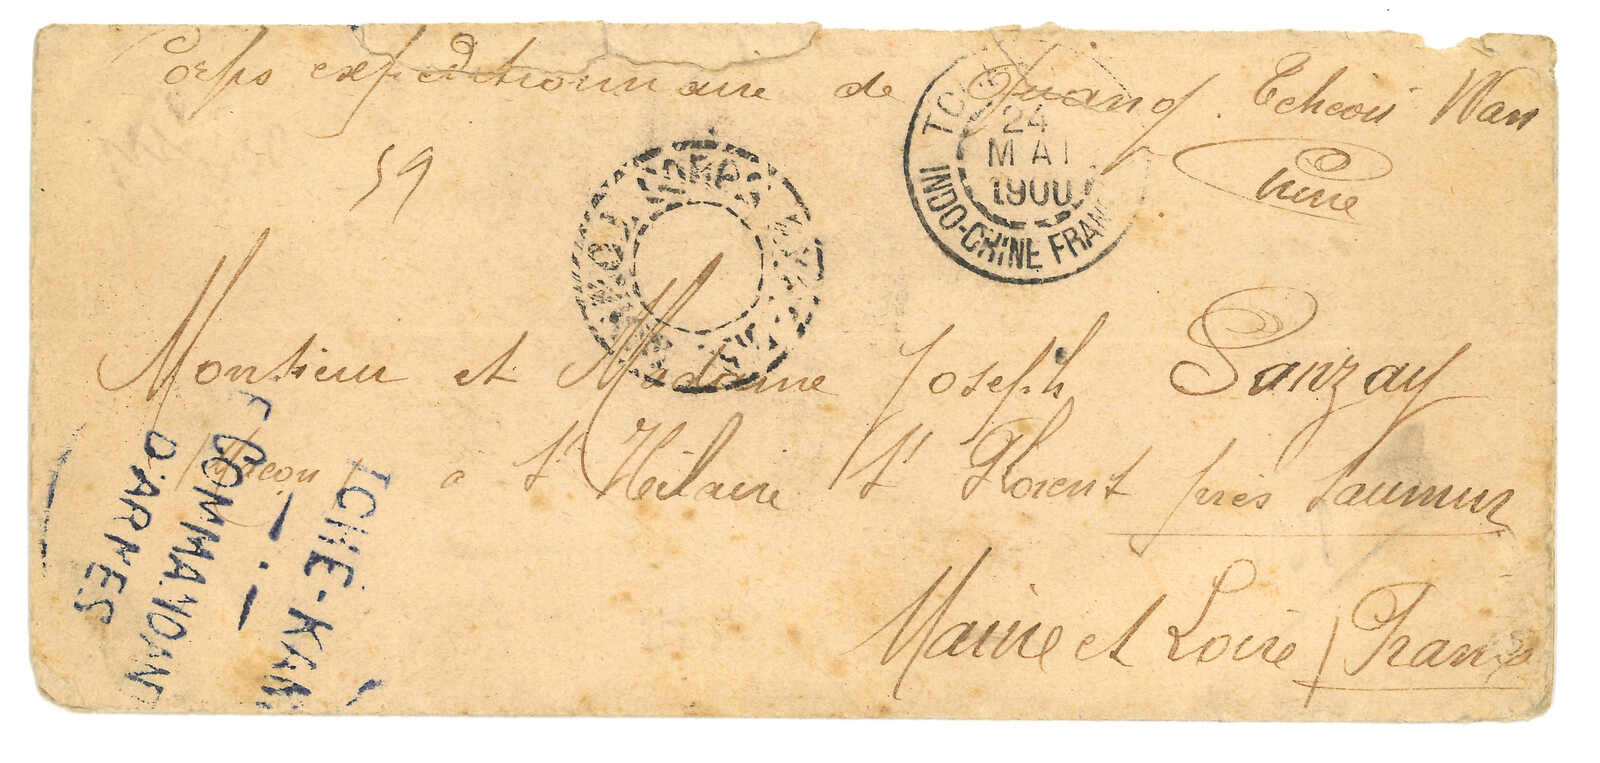 Corps expeditionnaire de Quang. Tcheou Wan
Chine
59
TCH
24
MAI
1900
INDO-CHINE FRAN
CORPS
Monsieur et Madame Joseph Sanzay
à St Hilaire St Florent près Saumur
Maine et Loire / France
TCHÉ-KAM
COMMANDANT
D'ARMES